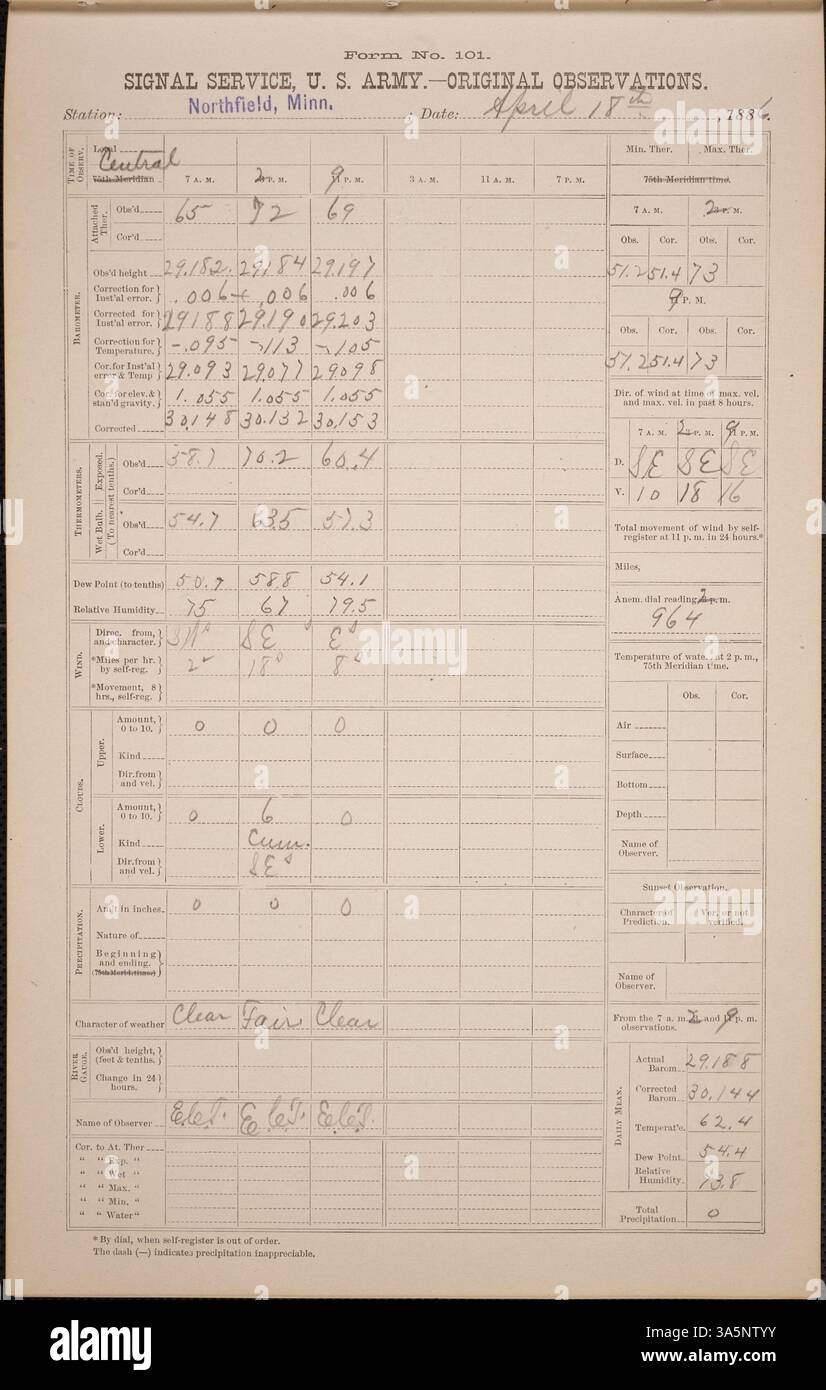 Form No. 101.
SIGNAL SERVICE, U. S. ARMY.—ORIGINAL OBSERVATIONS.
Station: Northfield, Minn. ; Date: April 18th, 1886.
TIME OF OBSERV. Local Central 75th Meridian 7 A. M. 2 P. M. 9 P. M. 3 A. M. 11 A. M. 7 P. M.
Min. Ther. Max. Ther.
75th Meridian time.
7 A. M. 2 P. M.
Obs. Cor. Obs. Cor.
51.2 51.4 73
9 P. M.
Obs. Cor. Obs. Cor.
51.2 51.4 73
BAROMETER.
Attached Ther. Obs'd 65 72 69
Cor'd
Obs'd height 29.182 29.184 29.197
Correction for Inst'al error. .006 + .006 .006
Corrected for Inst'al error. 29.188 29.190 29.203
Correction for Temperature. -.095 -.113 -.105
Cor. for Inst'al error & Temp 29.093 29.077 29.098
Cor. for elev. & stan'd gravity. 1.055 1.055 1.055
Corrected 30.148 30.132 30.153
Dir. of wind at time of max. vel. and max. vel. in past 8 hours.
7 A. M. 2 P. M. 9 P. M.
D. SE SE SE
V. 10 18 16
THERMOMETERS. (To nearest tenths.)
Exposed. Obs'd 58.7 70.2 60.4
Cor'd
Wet Bulb. Obs'd 54.7 63.5 57.3
Cor'd
Total movement of wind by self-register at 11 p. m. in 24 hours.*
Miles,
Anem. dial reading, 2 p. m.
964
Dew Point (to tenths) 50.7 58.8 54.1
Relative Humidity 75 67 79.5
WIND.
Direc. from, and character. SE E
*Miles per hr. by self-reg. 2 18 8
*Movement, 8 hrs., self-reg.
Temperature of water at 2 p. m., 75th Meridian time.
Obs. Cor.
Air
Surface
Bottom
Depth
Name of Observer.
CLOUDS.
Upper. Amount, 0 to 10. 0 0 0
Kind
Dir. from and vel.
Lower. Amount, 0 to 10. 0 6 0
Kind Cum.
Dir. from and vel. SE
Sunset Observation.
Character of Prediction. Ver. or not verified.
Name of Observer.
PRECIPITATION.
Am't in inches. 0 0 0
Nature of
Beginning and ending. (75th Merid. time)
Character of weather Clear Fair Clear
From the 7 a. m. 2, and 9 p. m. observations.
RIVER GAUGE.
Obs'd height, (feet & tenths.)
Change in 24 hours.
Name of Observer
DAILY MEAN.
Actual Barom. 29.188
Corrected Barom. 30.144
Temperat'e. 62.4
Dew Point. 54.4
Relative Humidity. 73.8
Total Precipitation. 0
Cor. to At. Ther
" " Exp. "
" " Wet "
" " Max. "
" " Min. "
" " Water "
* By dial, when self-register is out of order.
The dash (—) indicates precipitation inappreciable.
alamy
Image ID: 3A5NTYY
www.alamy.com